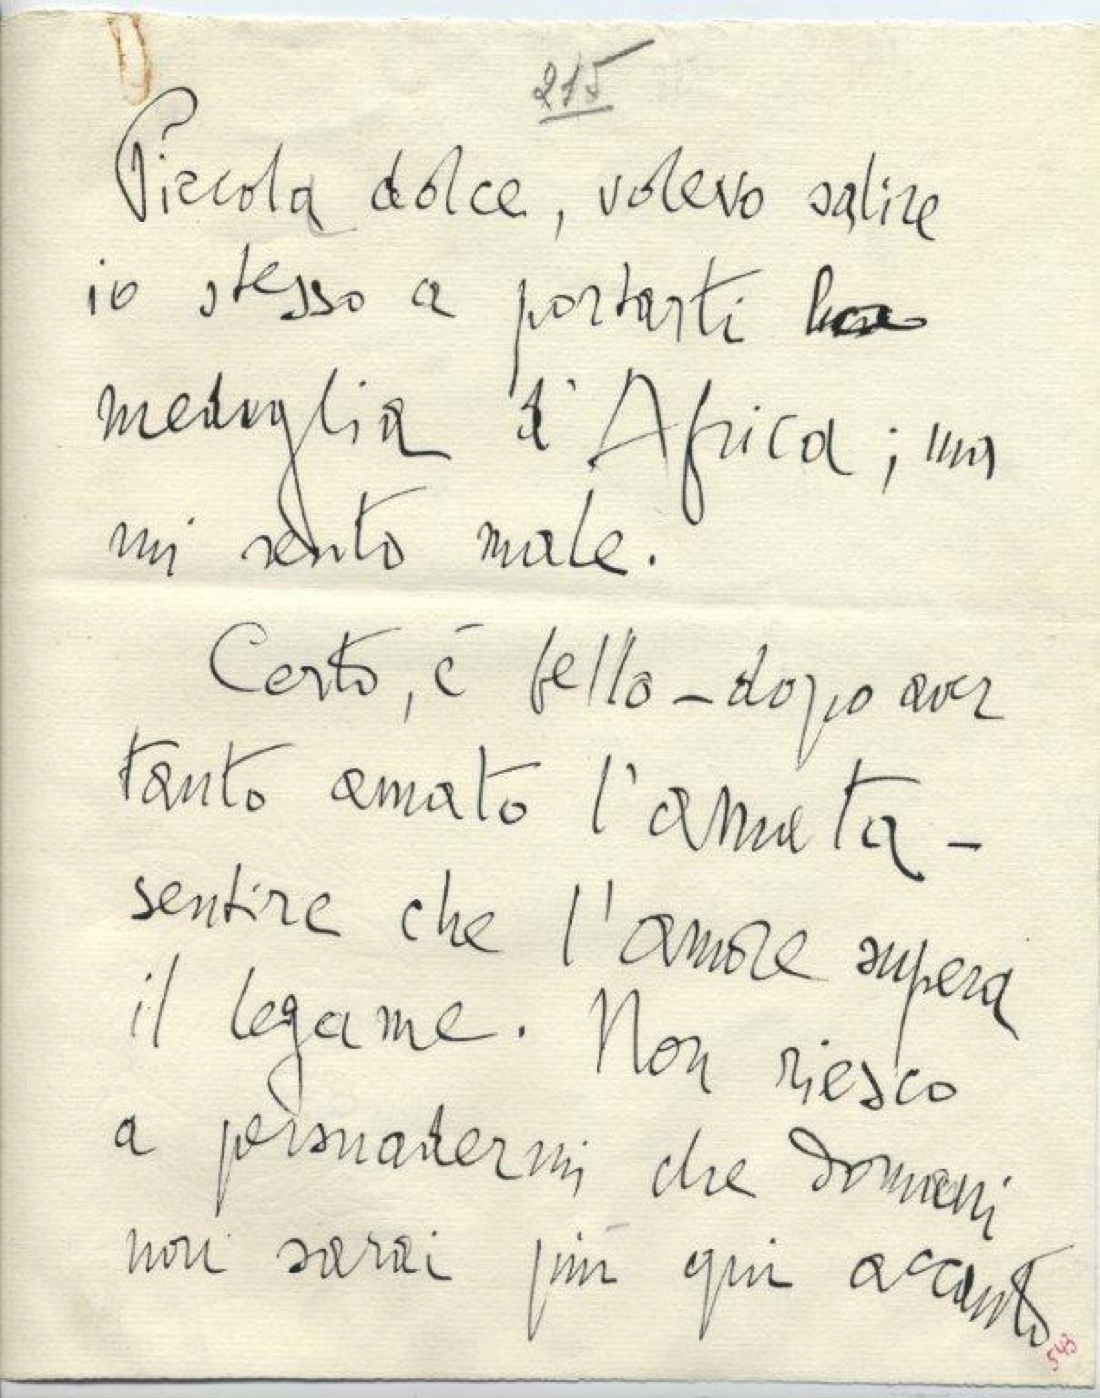 215
Piccola dolce, volevo salire
io stesso a portarti
medaglia d'Africa; ma
mi sento male.
Certo, è bello – dopo aver
tanto amato l'amata –
sentire che l'amore supera
il legame. Non riesco
a persuadermi che domani
non sarai più qui accanto
543